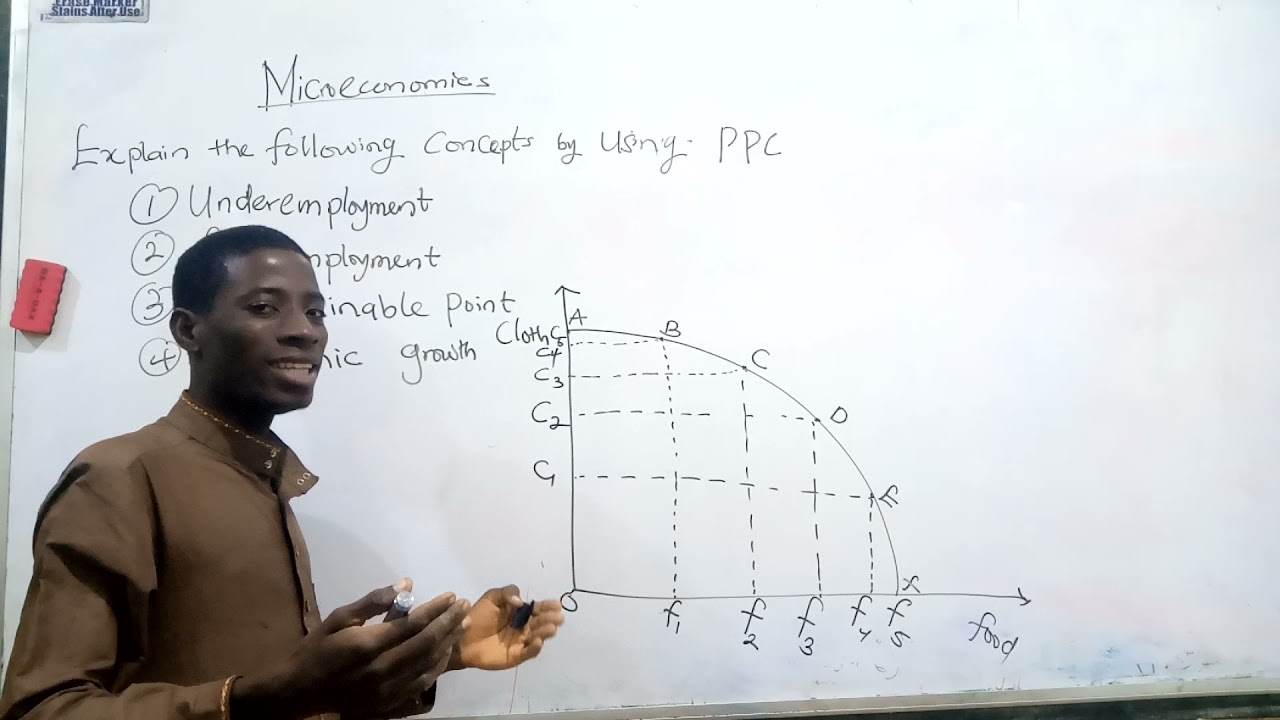 Erase Marker
Stains After Use
Microeconomics
Explain the following Concepts by Using PPC
① Underemployment
② mployment
③ inable point
④ mic growth
Cloth
A
B
C
D
E
C5
C4
C3
C2
C1
O
f1
f2
f3
f4
f5
food